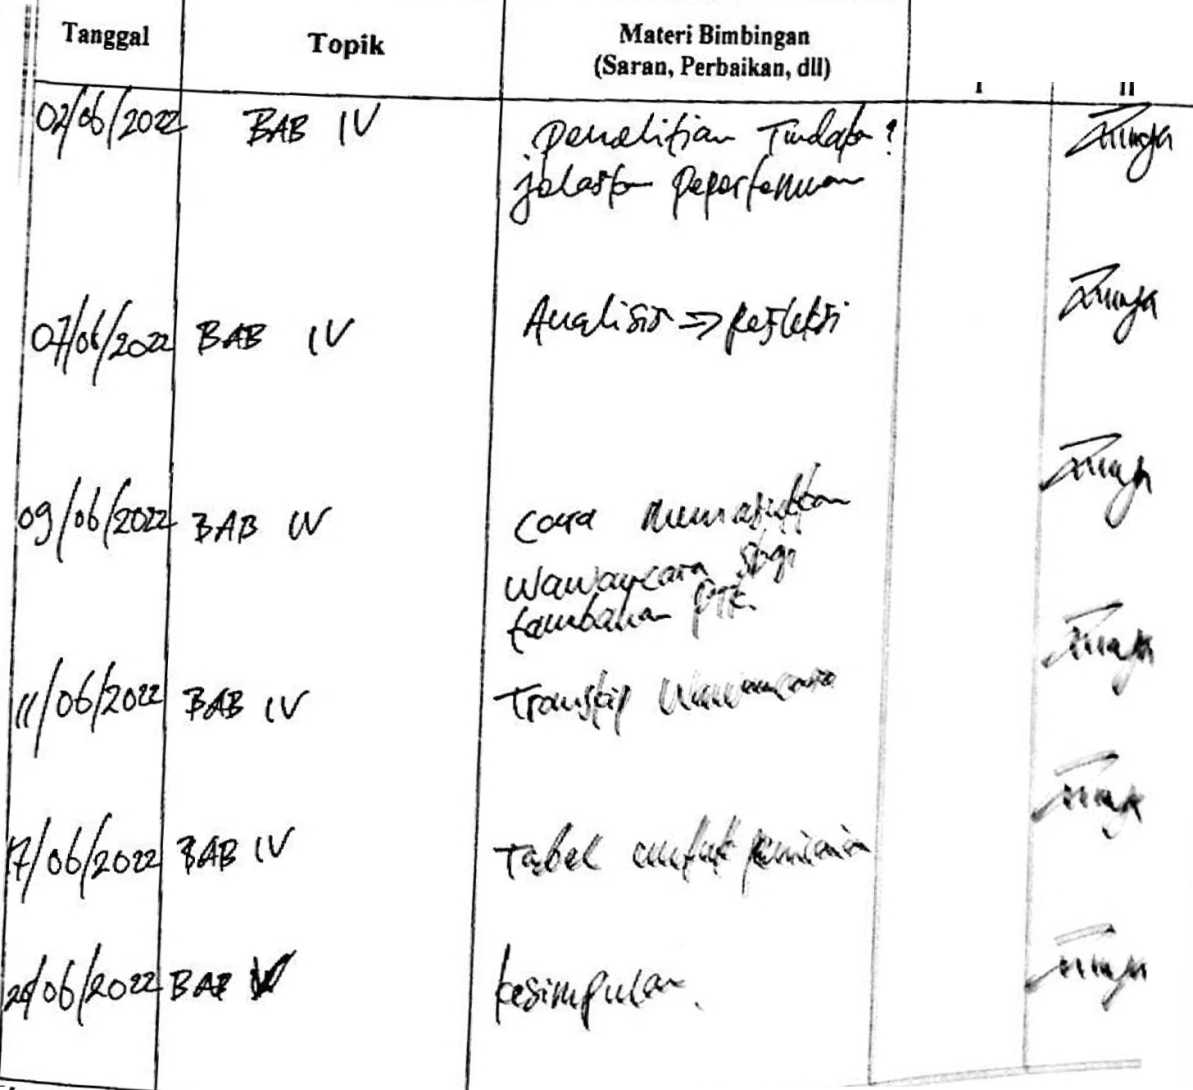 Tanggal Topik Materi Bimbingan
(Saran, Perbaikan, dll)
I II
02/06/2022 BAB IV penelitian Tindakan?
jelaskan pepertemuan
07/06/2022 BAB IV Analisis => Refleksi
09/06/2022 BAB IV cara memasukkan
wawancara sbgi
tambahan PTK.
11/06/2022 BAB IV Transkip wawancara
17/06/2022 BAB IV Tabel untuk
/06/2022 BAB V kesimpulan.